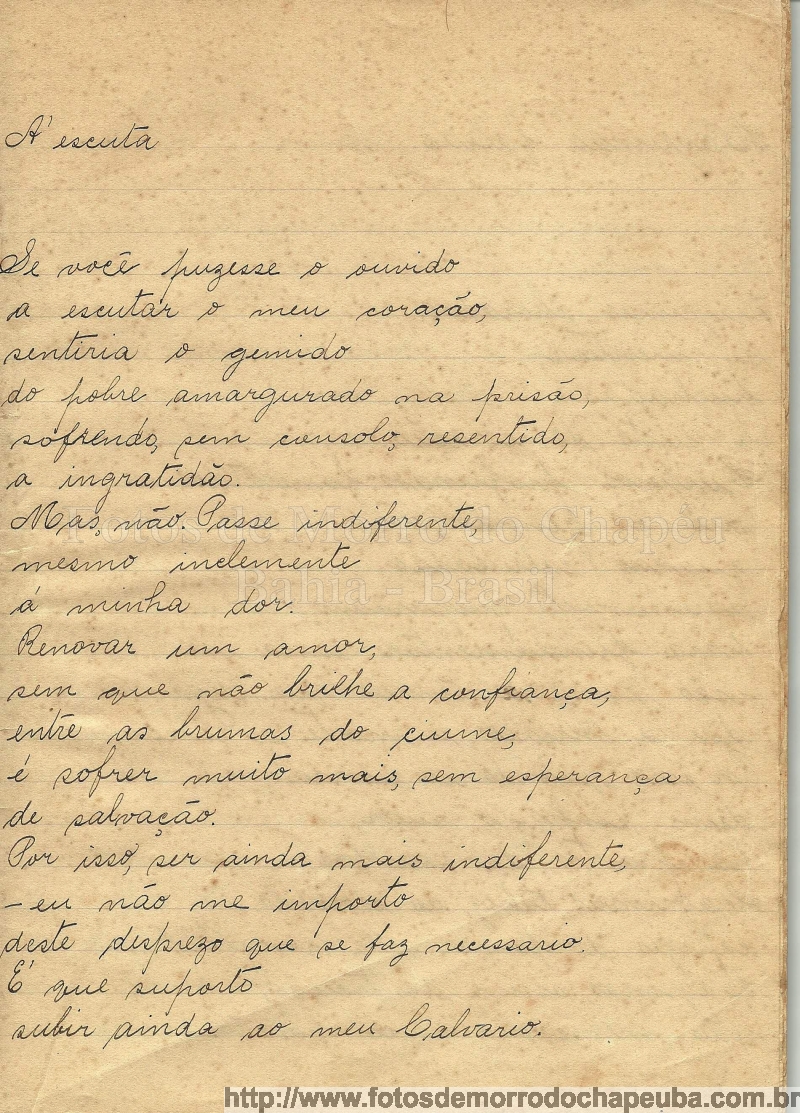 A' escuta
Se você puzesse o ouvido
a escutar o meu coração,
sentiria o gemido
do pobre amargurado na prisão,
sofrendo, sem consolo, resentido,
a ingratidão.
Mas, não. Passe indiferente,
mesmo inclemente
á minha dor.
Renovar um amor,
sem que não brilhe a confiança,
entre as brumas do ciume,
é sofrer muito mais, sem esperança
de salvação.
Por isso, ser ainda mais indiferente,
- eu não me importo
deste desprezo que se faz necessario.
E' que suporto
subir ainda ao meu Calvario.
Fotos de Morro do Chapéu
Bahia - Brasil
http://www.fotosdemorrodochapeuba.com.br